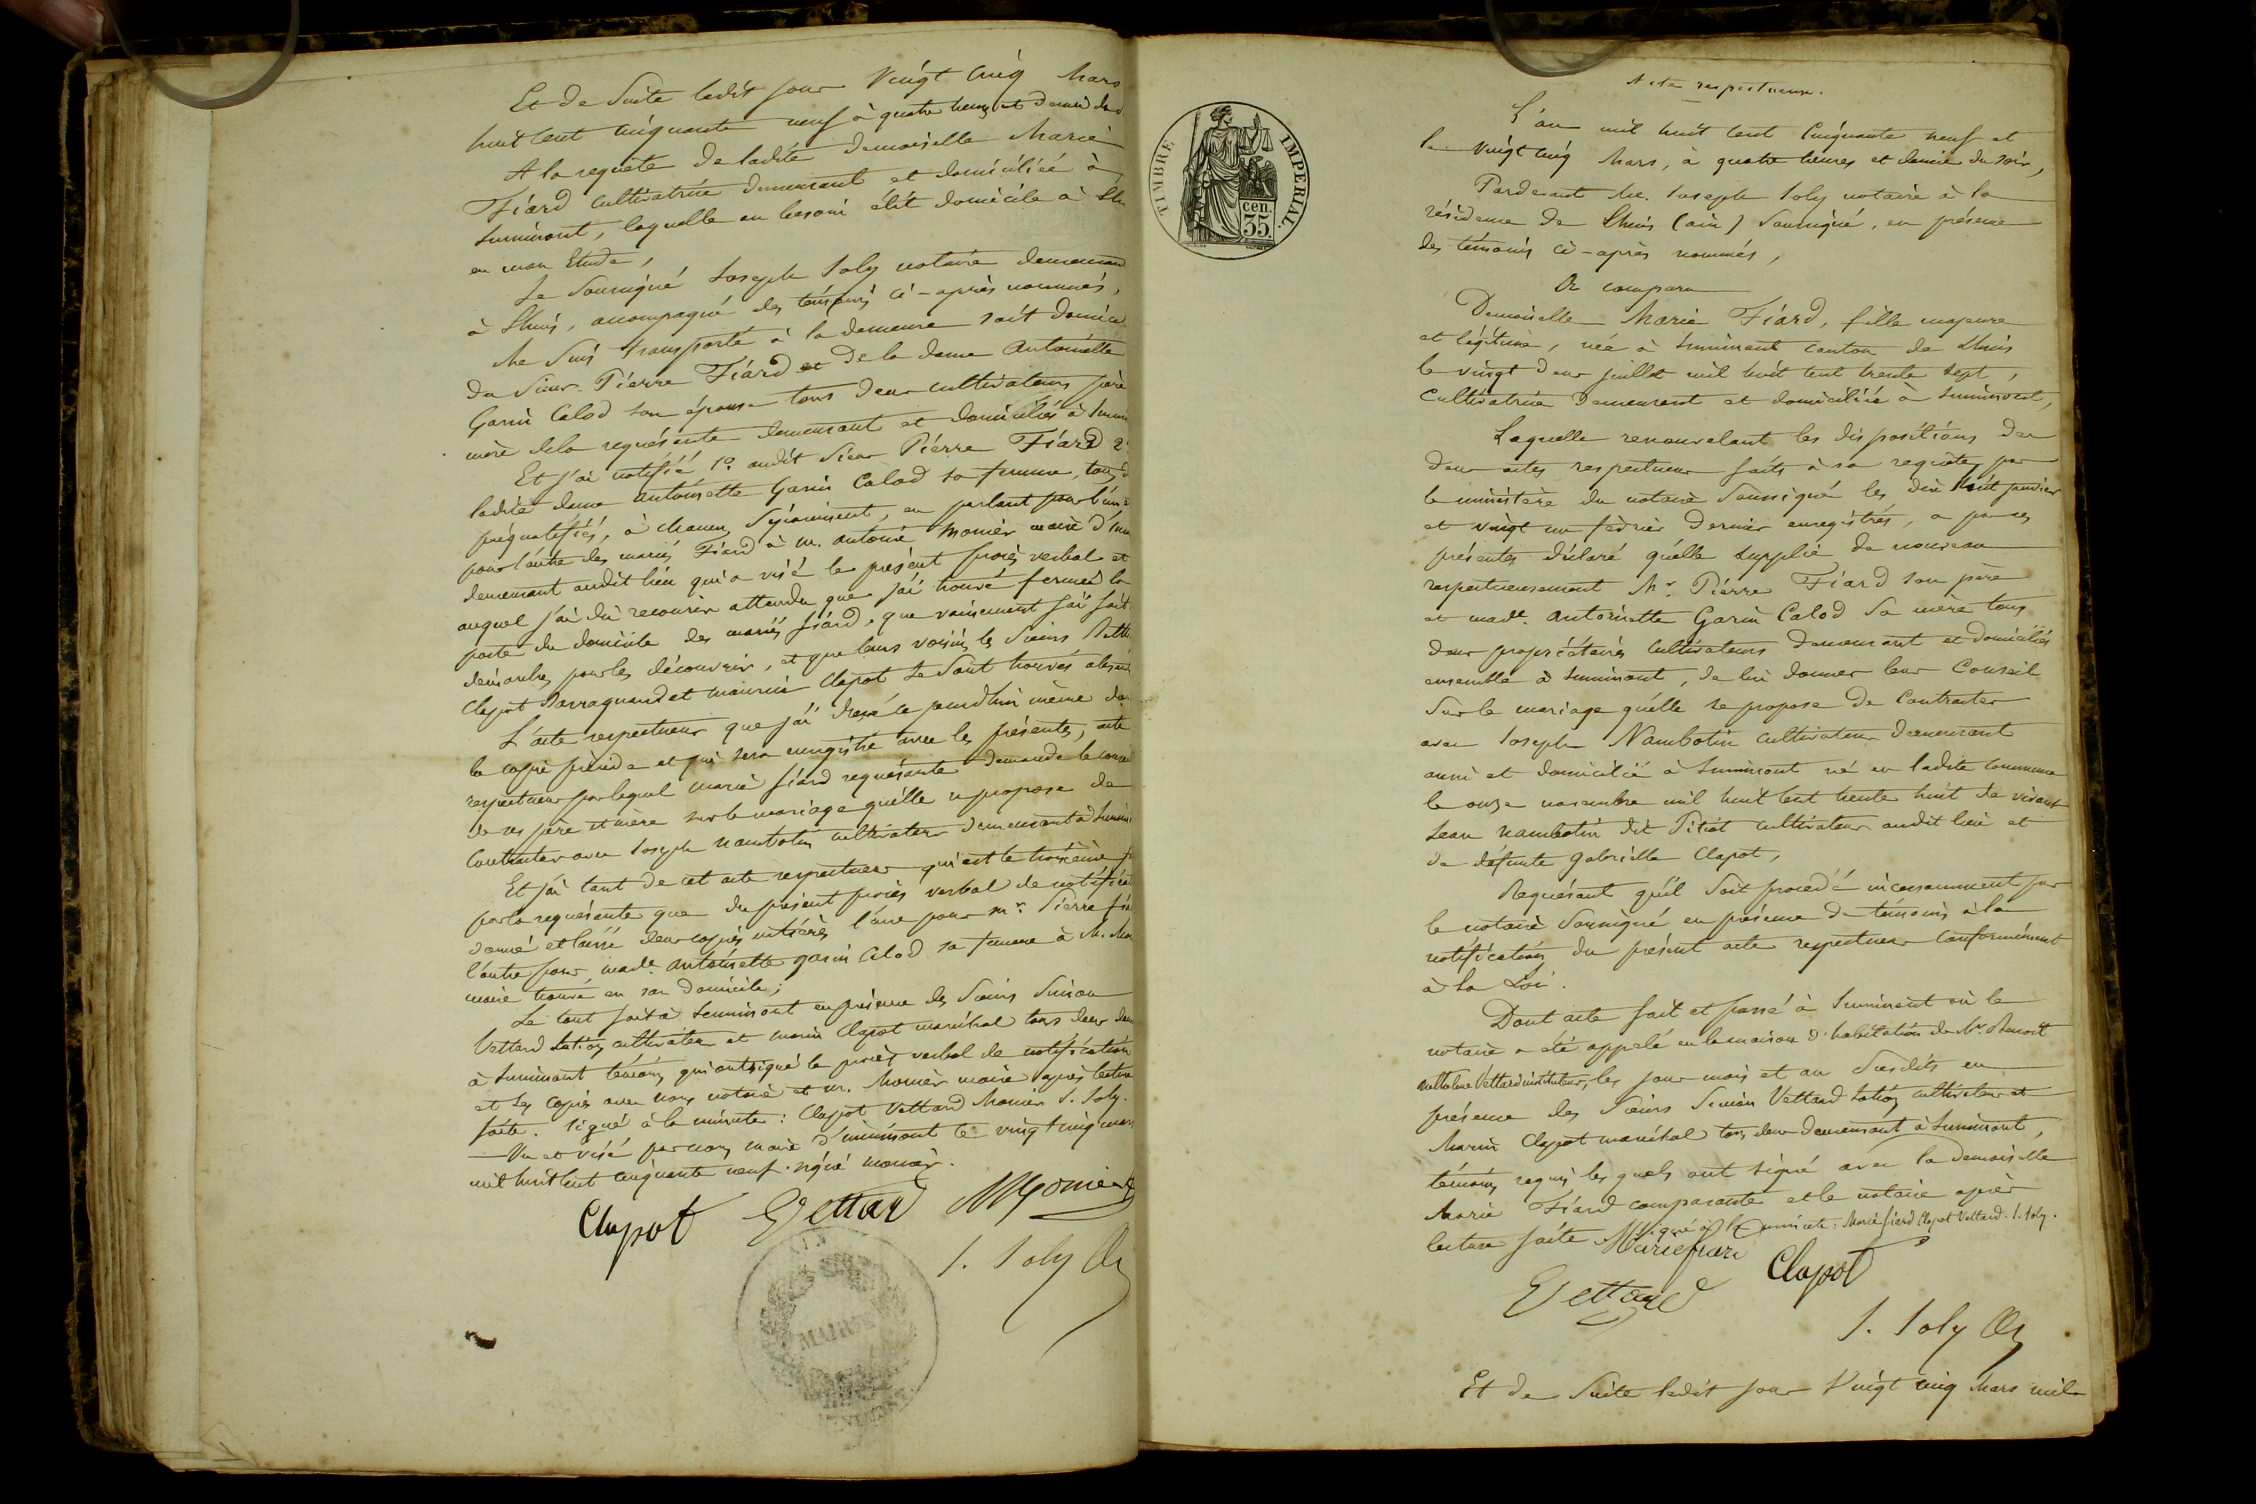 Et de suite ledit jour Vingt cinq Mars
huit cent cinquante neuf à quatre heures et demie du
A la requête de ladite demoiselle Marie
Fiard cultivatrice demeurant et domiciliée à
Innimont, laquelle en besoin élit domicile à Lh
en mon Etude,
Je Soussigné Joseph Joly notaire demeurant
à Lhuis, accompagné des témoins ci-après nommés,
Me suis transporté à la demeure soit domici
du Sieur Pierre Fiard et de la dame Antoinette
Garin Calod son épouse tous deux cultivateurs père
mère de la requérante demeurant et domiciliés à Innim
Et j'ai notifié 1º. audit Sieur Pierre Fiard 2º
ladite dame Antoinette Garin Calod sa femme, tous d
préqualifiés, à chacun séparément, en parlant pour l'un
pour l'autre des mariés Fiard à M. Antoine Monier maire d'Inni
demeurant audit lieu qui a visé le présent procès verbal et
auquel j'ai dû recourir attendu que j'ai trouvé fermée la
porte du domicile des mariés fiard, que vainement j'ai fait
démarches pour les découvrir, et que leurs voisins les Sieurs
Clapot Parraguand et Maurice Clapot se sont trouvés absents
L'acte respectueux que j'ai dressé ce jourd'hui même don
la copie précède et qui sera enregistré avec les présentes, acte
respectueux par lequel Marie fiard requérante demande le conseil
de ses père et mère sur le mariage qu'elle se propose de
Contracter avec Joseph Nambotin cultivateur demeurant à Innimo
Et j'ai tant de cet acte respectueux qui est le troisième
par la requérante que du présent procès verbal de notificat
donné et laissé deux copies entières l'une pour Mr. Pierre fia
l'autre pour made. Antoinette garin Calod sa femme à M. Mon
maire trouvé en son domicile;
Le tout fait à Innimont en présence des Sieurs Simon
Vettard Lation cultivateur et Marin Clapot maréchal tous deux dem
à Innimont témoins qui ont signé le procès verbal de notification
et les copies avec nous notaire et M. Monier maire après lecture
faite. Signé à la minute: Clapot Vettard Monier J. Joly.
Vu et visé par nous maire d'innimont le vingt cinq mars
mil huit cent cinquante neuf. signé monier.
Clapot Vettard Monier
J. Joly
MAIRIE
TIMBRE IMPERIAL.
cen.
35.
Acte respectueux.
L'an mil huit cent Cinquante neuf et
le Vingt cinq Mars, à quatre heures et demie du soir,
Pardevant Me. Joseph Joly notaire à la
résidence de Lhuis (ain) Soussigné, en présence
des témoins ci-après nommés,
A comparu
Demoiselle Marie Fiard, fille majeure
et légitime, née à Innimont canton de Lhuis
le vingt deux juillet mil huit cent trente sept,
Cultivatrice demeurant et domiciliée à Innimont,
Laquelle renouvelant les dispositions des
deux actes respectueux faits à sa requête, par
le ministère du notaire Soussigné les dix huit janvier
et vingt un fèvrier dernier enregistrés, a par ces
présentes déclaré qu'elle supplie de nouveau
respectueusement Mr. Pierre Fiard son père
et made. Antoinette Garin Calod sa mère tous
deux propriétaires cultivateurs demeurant et domiciliés
ensemble à Innimont, de lui donner leur Conseil
Sur le mariage qu'elle se propose de Contracter
avec Joseph Nambotin cultivateur demeurant
aussi et domicilié à Innimont né en ladite commune
le onze novembre mil huit cent trente huit du vivant
Jean Nambotin dit Pitiot cultivateur audit lieu et
de défunte Gabrielle Clapot,
Requérant qu'il soit procédé incessamment par
le notaire Soussigné en présence de témoins à la
notification du présent acte respectueux conformément
à la Loi.
Dont acte fait et passé à Innimont où le
notaire a été appelé en la maison d'habitation de Mr. Benoit
Vettard instituteur, les jour mois et an susdits en
présence des Sieurs Simon Vettard Lation cultivateur et
Marin Clapot maréchal tous deux demeurant à Innimont,
témoins requis lesquels ont signé avec la demoiselle
Marie Fiard comparante et le notaire après
lecture faite signé à la minute: Marie fiard Clapot Vettard. J. Joly.
Marie fiard
Vettard Clapot
J. Joly
Et de Suite ledit jour Vingt cinq Mars mil